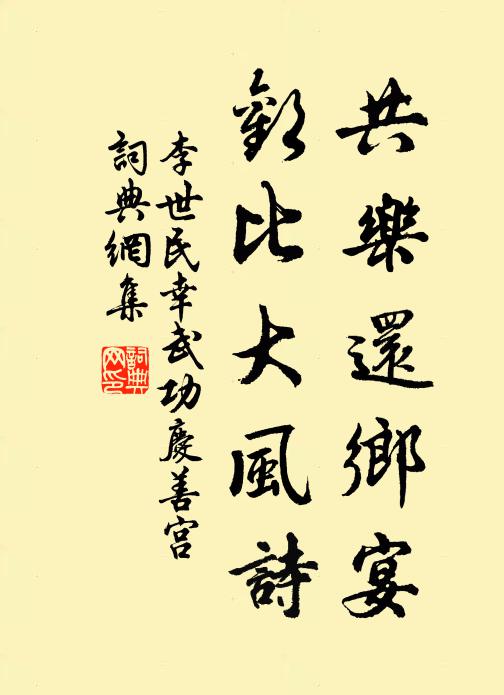 共樂還鄉宴
歡比大風詩
李世民幸武功慶善宮
詞典網集
詞典網印